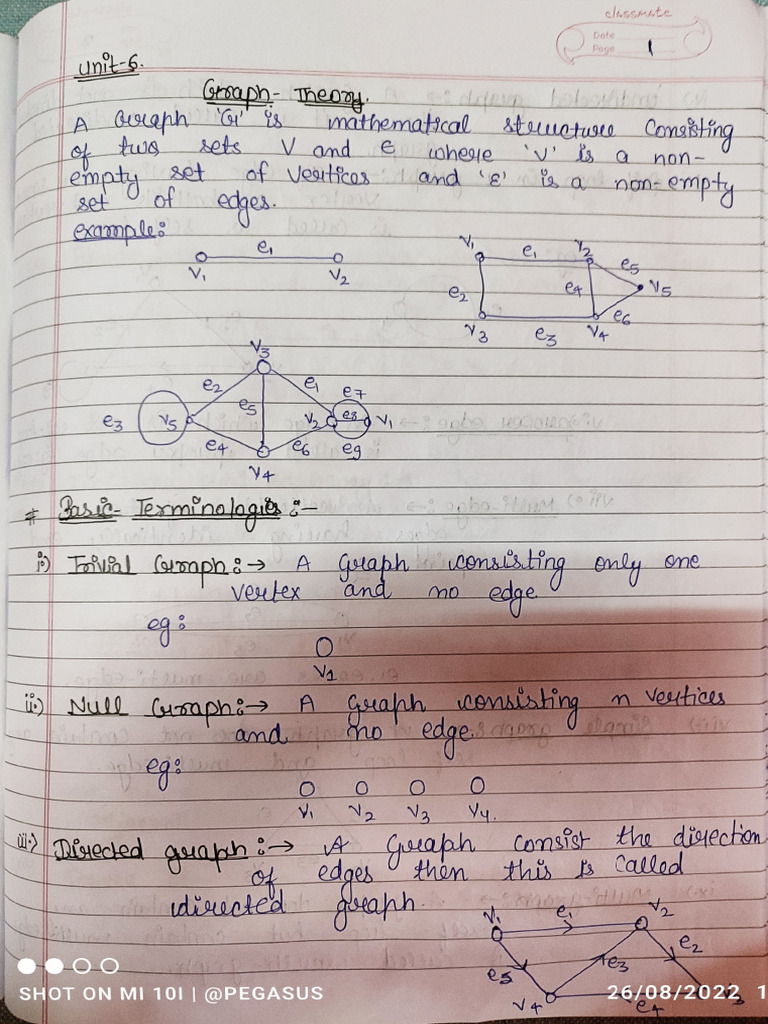 classmate
Date
Page 1
Unit-6.
Graph- Theory.
A Graph 'G' is mathematical structure consisting
of two sets V and E where 'V' is a non-
empty set of vertices and 'E' is a non-empty
set of edges.
example:
e1
V1 V2
V1 e1 V2 e5
e2 e4 V5
V3 e3 V4 e6
V3
e2 e1 e7
e3 V5 e5 V2 e8 V1
e4 e6 e9
V4
# Basic- Terminologies :-
i.) Trivial Graph:→ A Graph consisting only one
vertex and no edge
eg:
V1
ii.) Null Graph:→ A Graph consisting n vertices
and no edge.
eg:
V1 V2 V3 V4.
iii.) Directed graph:→ A Graph consist the direction
of edges then this is called
directed graph.
V1 e1 V2
e5 e3 e2
V4 e4 V3
SHOT ON MI 10I | @PEGASUS
26/08/2022 1